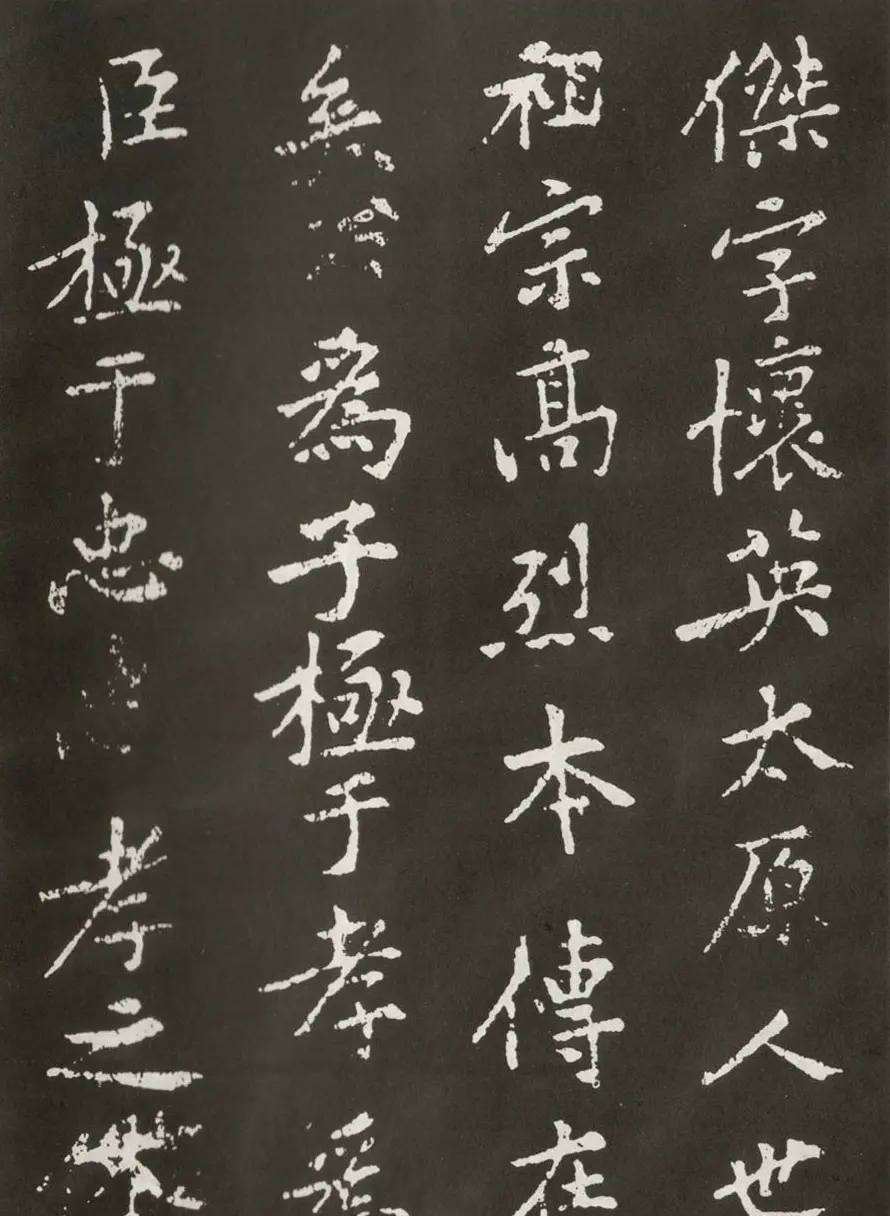 傑字懷英太原人世
祖宗高烈本傳在
矣公為子極于孝為
臣極于忠忠孝之